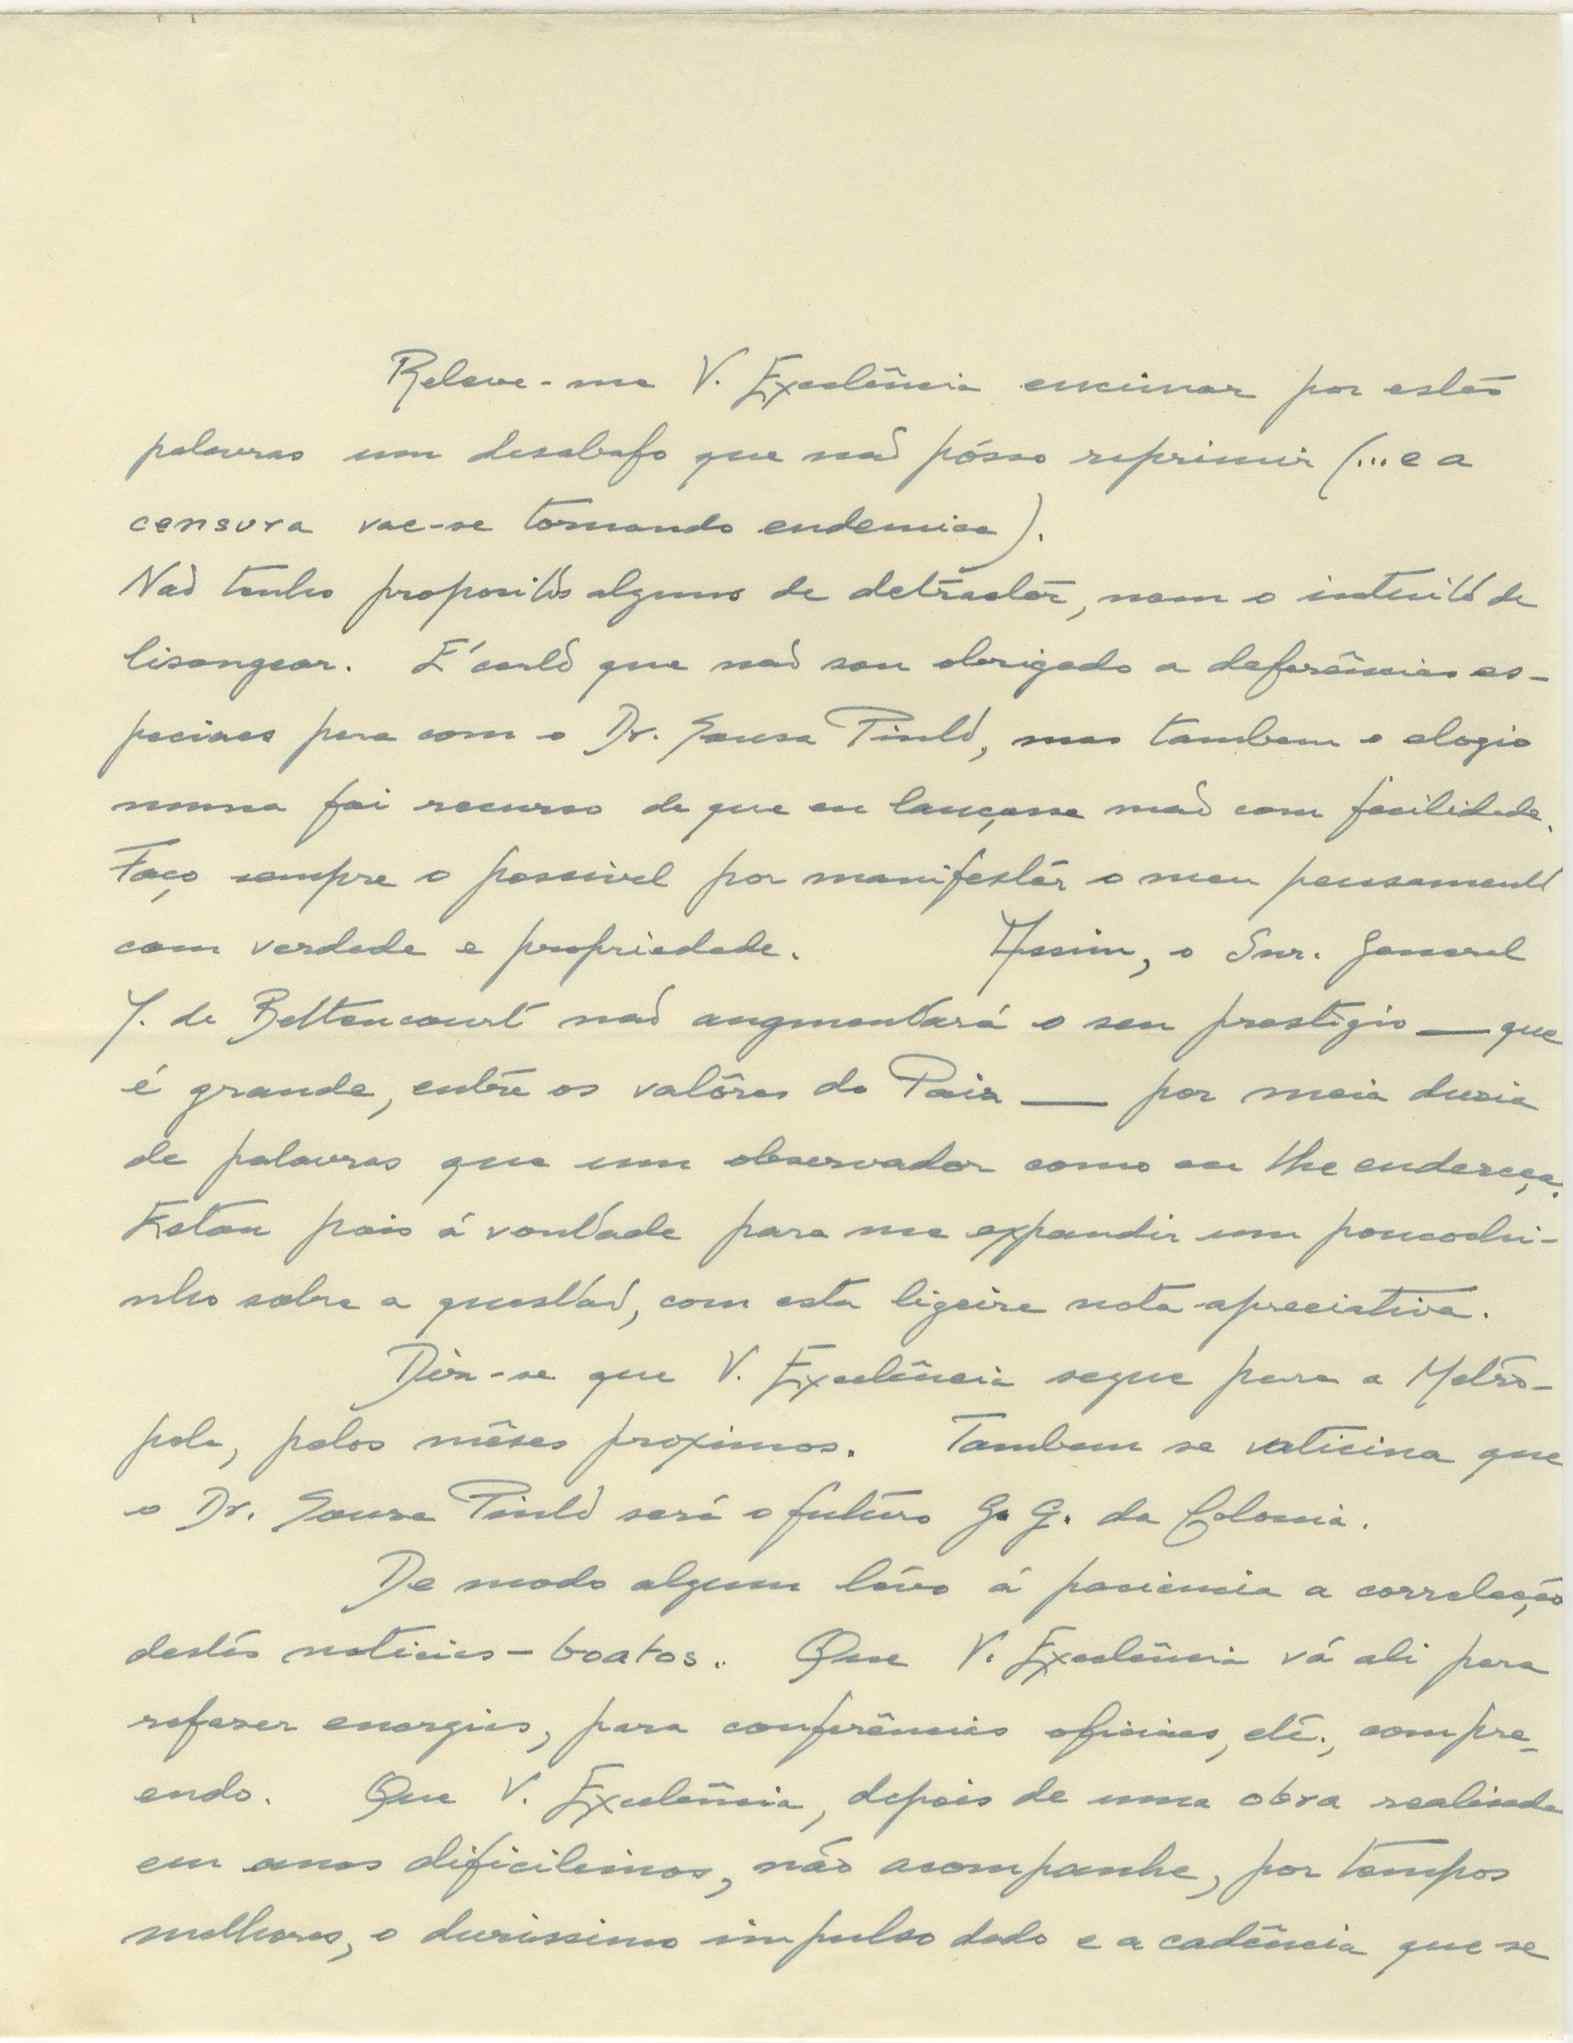 Releve-me V. Excelência encimar por estas
palavras um desabafo que naõ pósso reprimir (... e a
censura vae-se tornando endemica).
Naõ tenho propositos alguns de detractôr, nem o intuito de
lisongear. É certo que naõ sou obrigado a deferências es-
peciaes para com o Dr. Sousa Pinto, mas tambem o elogio
nunca foi recurso de que eu lançasse maõ com facilidade.
Faço sempre o possivel por manifestár o meu pensamento
com verdade e propriedade. Assim, o Snr. General
T. de Bettencourt naõ augmentará o seu prestigio — que
é grande, entre os valôres do Pais — por meia duzia
de palavras que um observador como eu lhe endereça.
Estou pois á vontade para me expandir um poucochi-
nho sobre a questaõ, com esta ligeira nota apreciativa.
Diz-se que V. Excelência segue para a Metró-
pole, pelos mêses proximos. Tambem se vaticina que
o Dr. Sousa Pinto será o futuro G. G. da Colonia.
De modo algum lévo á paciencia a correlação
destas noticias-boatos. Que V. Excelência vá ali para
refazer energias, para conferências oficiaes, etc., compre-
endo. Que V. Excelência, depois de uma obra realisada
em anos dificilimos, não acompanhe, por tempos
melhores, o durissimo impulso dado e a cadência que se